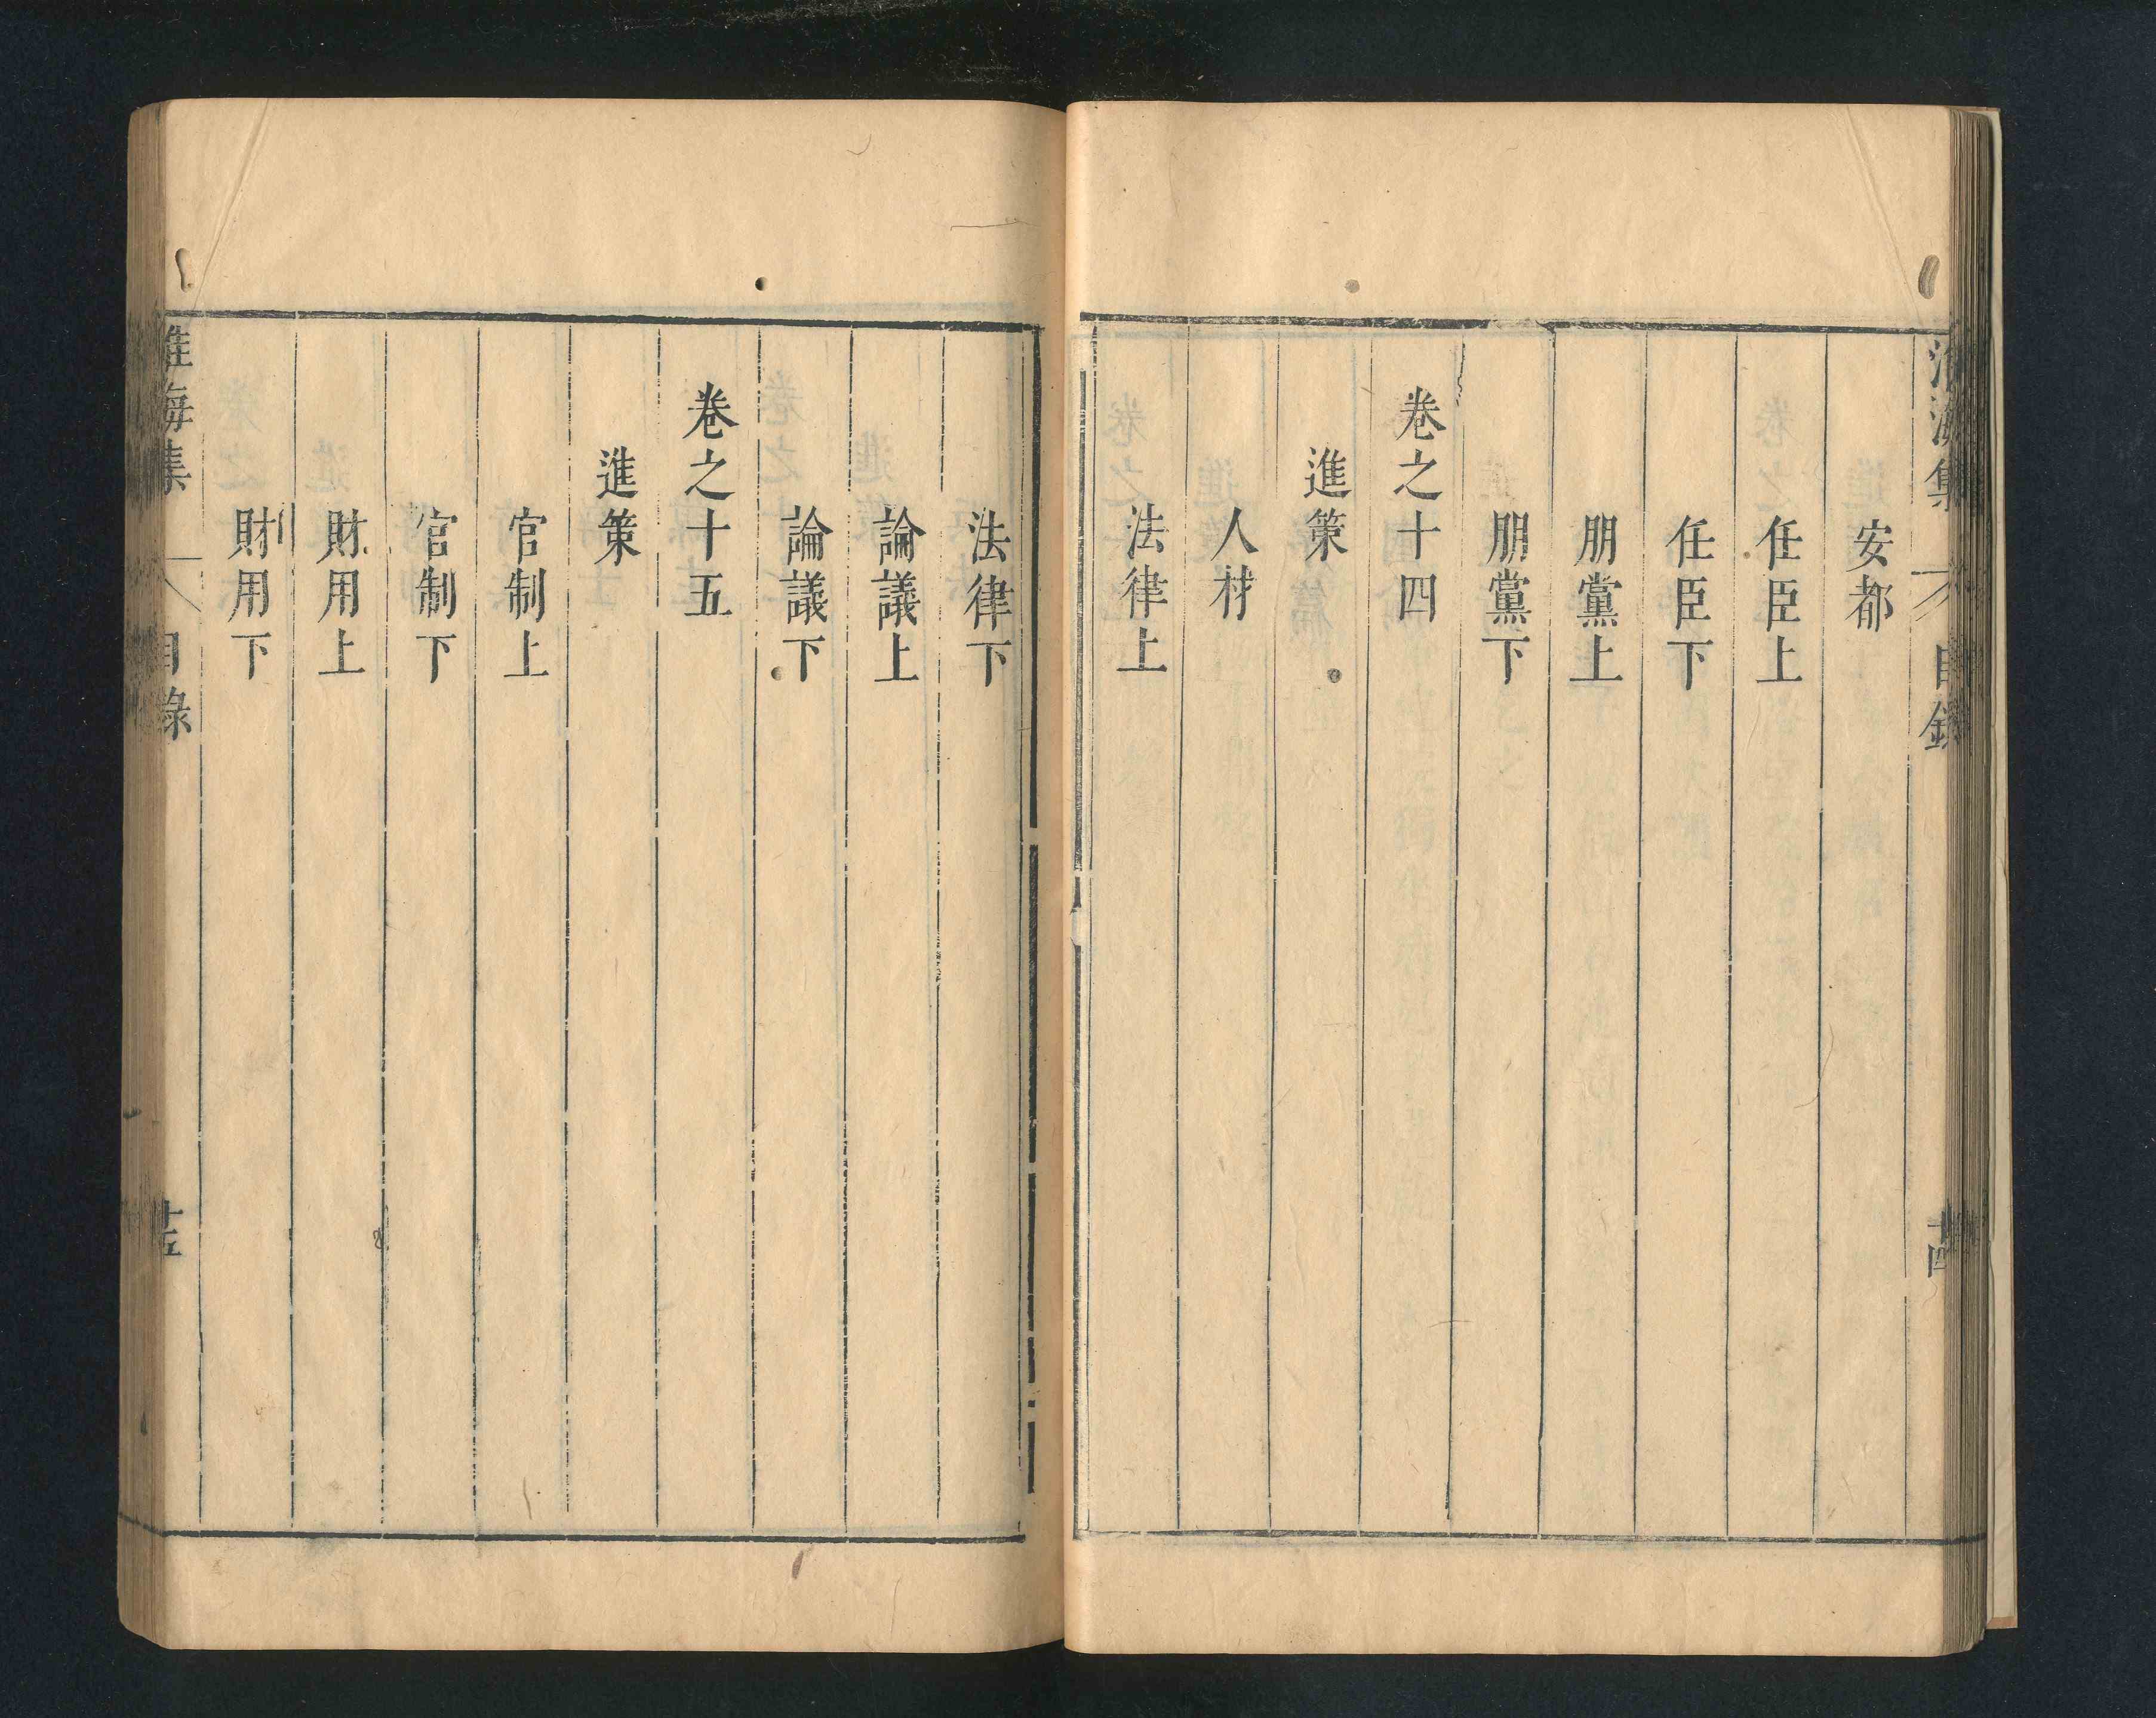 淮海集
目錄
十四
安都
任臣上
任臣下
朋黨上
朋黨下
卷之十四
進策
人材
法律上
法律下
論議上
論議下
卷之十五
進策
官制上
官制下
財用上
財用下
淮海集
目錄
十五